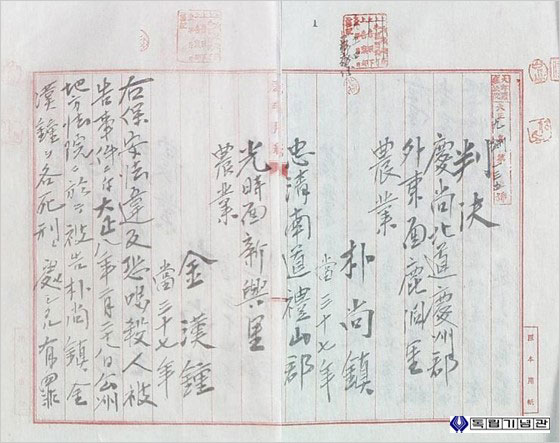 判決
慶尚北道慶州郡
外東面鹿洞里
農業
朴尚鎮
當三十七年
忠清南道禮山郡
光時面新興里
農業
金漢鍾
當三十七年
右保安法違反恐喝殺人被
告事件ニ付大正八年二月二十八日公州
地方法院ニ於テ被告朴尚鎮金
漢鍾ヲ各死刑ニ處シタル有罪
독립기념관